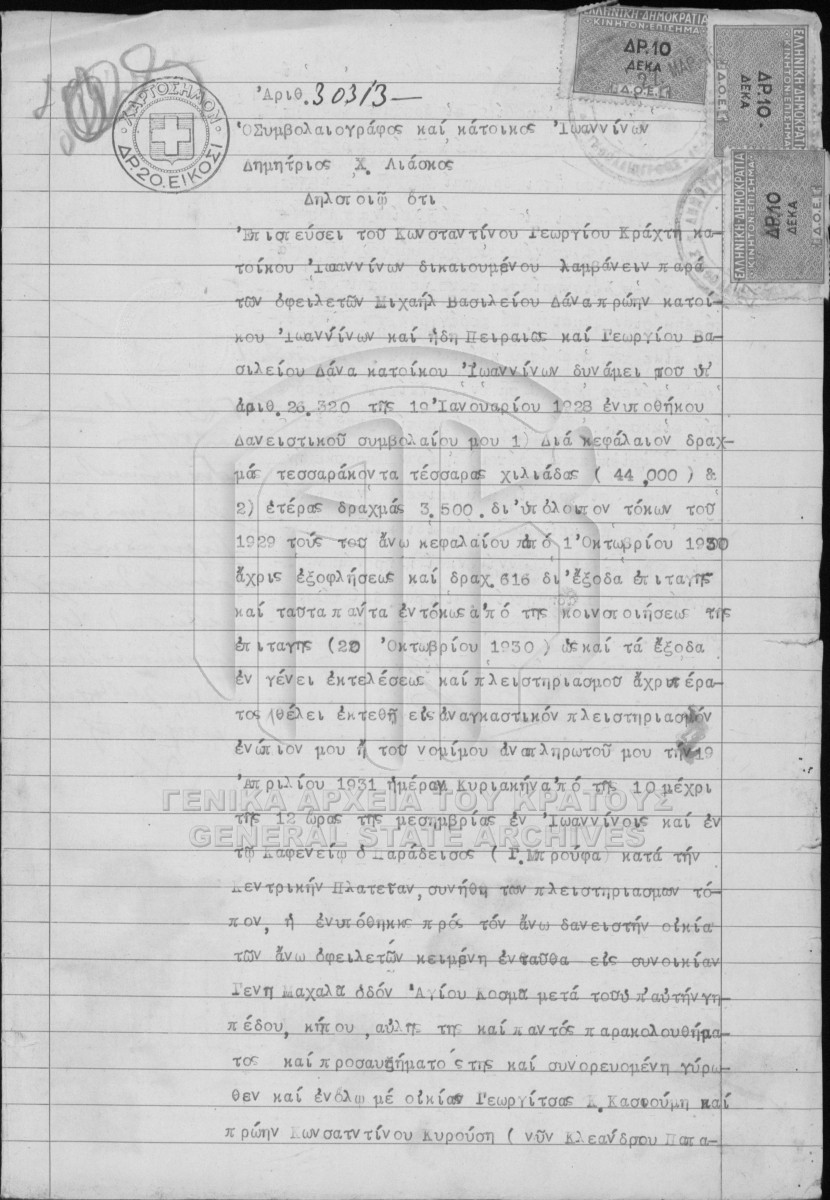 Ἀριθ. 30313—
Ὁ Συμβολαιογράφος καί κάτοικος Ἰωαννίνων
Δημήτριος Χ. Λιάσκος
Δηλοποιῶ ὅτι
Ἐπισπεύσει τοῦ Κωνσταντίνου Γεωργίου Κράχτη κα-
τοίκου Ἰωαννίνων δικαιουμένου λαμβάνειν παρά
τῶν ὀφειλετῶν Μιχαήλ Βασιλείου Δάνα πρώην κατοί-
κου Ἰωαννίνων καί ἤδη Πειραιῶς καί Γεωργίου Βα-
σιλείου Δάνα κατοίκου Ἰωαννίνων δυνάμει τοῦ ὑπ'
ἀριθ. 26.320 τῆς 19 Ἰανουαρίου 1928 ἐνυποθήκου
Δανειστικοῦ συμβολαίου μου 1) Διά κεφάλαιον δραχ-
μάς τεσσαράκοντα τέσσαρας χιλιάδας ( 44,000 ) &
2) ἑτέρας δραχμάς 3.500. δι' ὑπόλοιπον τόκων τοῦ
1929 τούς τοῦ ἄνω κεφαλαίου ἀπό 1 Ὀκτωβρίου 1930
ἄχρις ἐξοφλήσεως καί δραχ. 616 δι' ἔξοδα ἐπιταγῆς
καί ταῦτα πάντα ἐντόκως ἀπό τῆς κοινοποιήσεως τῆς
ἐπιταγῆς (22 Ὀκτωβρίου 1930 ) ὡς καί τά ἔξοδα
ἐν γένει ἐκτελέσεως καί πλειστηριασμοῦ ἄχρι πέρα-
τος θέλει ἐκτεθῆ εἰς ἀναγκαστικόν πλειστηριασμόν
ἐνώπιον μου ἤ τοῦ νομίμου ἀναπληρωτοῦ μου τήν 19
Ἀπριλίου 1931 ἡμέραν Κυριακήν ἀπό τῆς 10 μέχρι
τῆς 12 ὥρας τῆς μεσημβρίας ἐν Ἰωαννίνοις καί ἐν
τῷ Καφενείῳ ὁ Παράδεισος ( Γ. Μπρούφα) κατά τήν
Κεντρικήν Πλατεῖαν, συνήθη τῶν πλειστηριασμῶν τό-
πον, ἡ ἐνυπόθηκος πρός τόν ἄνω δανειστήν οἰκία
τῶν ἄνω ὀφειλετῶν κειμένη ἐνταῦθα εἰς συνοικίαν
Γενή Μαχαλᾶ ὁδόν Ἁγίου Κοσμᾶ μετά τοῦ ὑπ' αὐτήν γη-
πέδου, κήπου, αὐλῆς της καί παντός παρακολουθήμα-
τος καί προσαυξήματός της καί συνορευομένη γύρω-
θεν καί ἐν ὅλῳ μέ οἰκίας Γεωργίτσας Κ. Κασσούμη καί
πρώην Κωνσατντίνου Κυρούση ( νῦν Κλεάνδρου Παπα-
ΧΑΡΤΟΣΗΜΟΝ
ΔΡ. 20. ΕΙΚΟΣΙ
ΕΛΛΗΝΙΚΗ ΔΗΜΟΚΡΑΤΙΑ
ΚΙΝΗΤΟΝ ΕΠΙΣΗΜΑ
ΔΡ. 10
ΔΕΚΑ
Δ.Ο.Ε.
ΕΛΛΗΝΙΚΗ ΔΗΜΟΚΡΑΤΙΑ
ΚΙΝΗΤΟΝ ΕΠΙΣΗΜΑ
ΔΡ. 10
ΔΕΚΑ
Δ.Ο.Ε.
ΕΛΛΗΝΙΚΗ ΔΗΜΟΚΡΑΤΙΑ
ΚΙΝΗΤΟΝ ΕΠΙΣΗΜΑ
ΔΡ. 10
ΔΕΚΑ
Δ.Ο.Ε.
ΓΕΝΙΚΑ ΑΡΧΕΙΑ ΤΟΥ ΚΡΑΤΟΥΣ
GENERAL STATE ARCHIVES